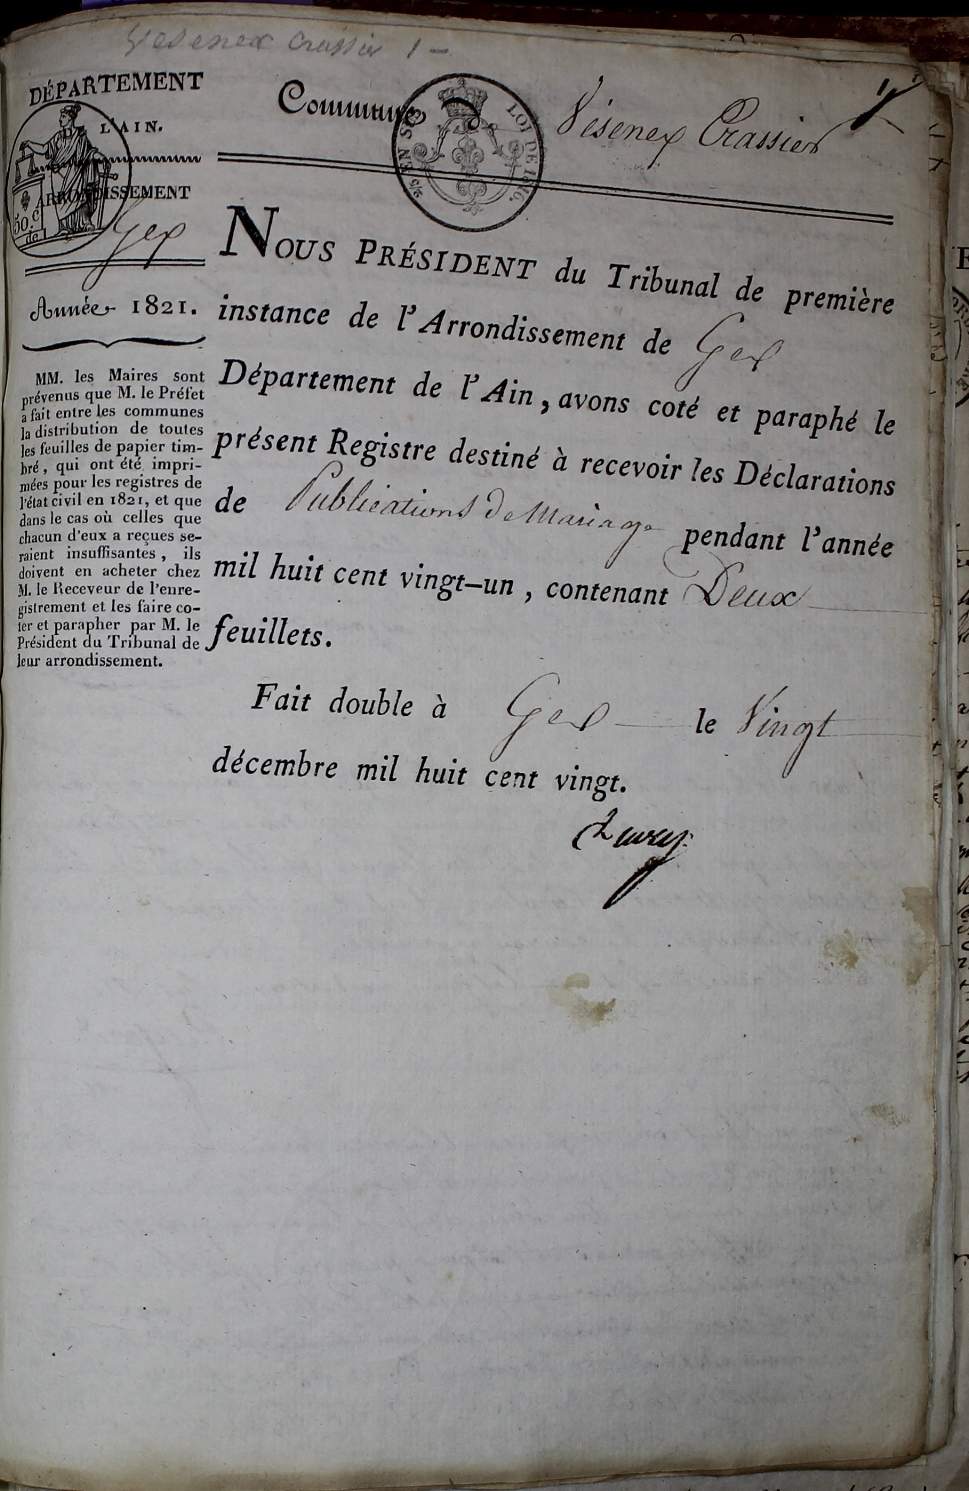 Vesenex Crassier 1 -
DÉPARTEMENT
L'AIN.
ARRONDISSEMENT
50.c
de
Gex
Année 1821.
MM. les Maires sont
prévenus que M. le Préfet
a fait entre les communes
la distribution de toutes
les feuilles de papier tim-
bré, qui ont été impri-
mées pour les registres de
l'état civil en 1821, et que
dans le cas où celles que
chacun d'eux a reçues se-
raient insuffisantes, ils
doivent en acheter chez
M. le Receveur de l'enre-
gistrement et les faire co-
ter et parapher par M. le
Président du Tribunal de
leur arrondissement.
Commune Vésenex Crassier
EN SUS LOI DE 1816.
NOUS PRÉSIDENT du Tribunal de première
instance de l'Arrondissement de Gex
Département de l'Ain, avons coté et paraphé le
présent Registre destiné à recevoir les Déclarations
de Publications De Mariage pendant l'année
mil huit cent vingt-un, contenant Deux
feuillets.
Fait double à Gex le Vingt
décembre mil huit cent vingt.